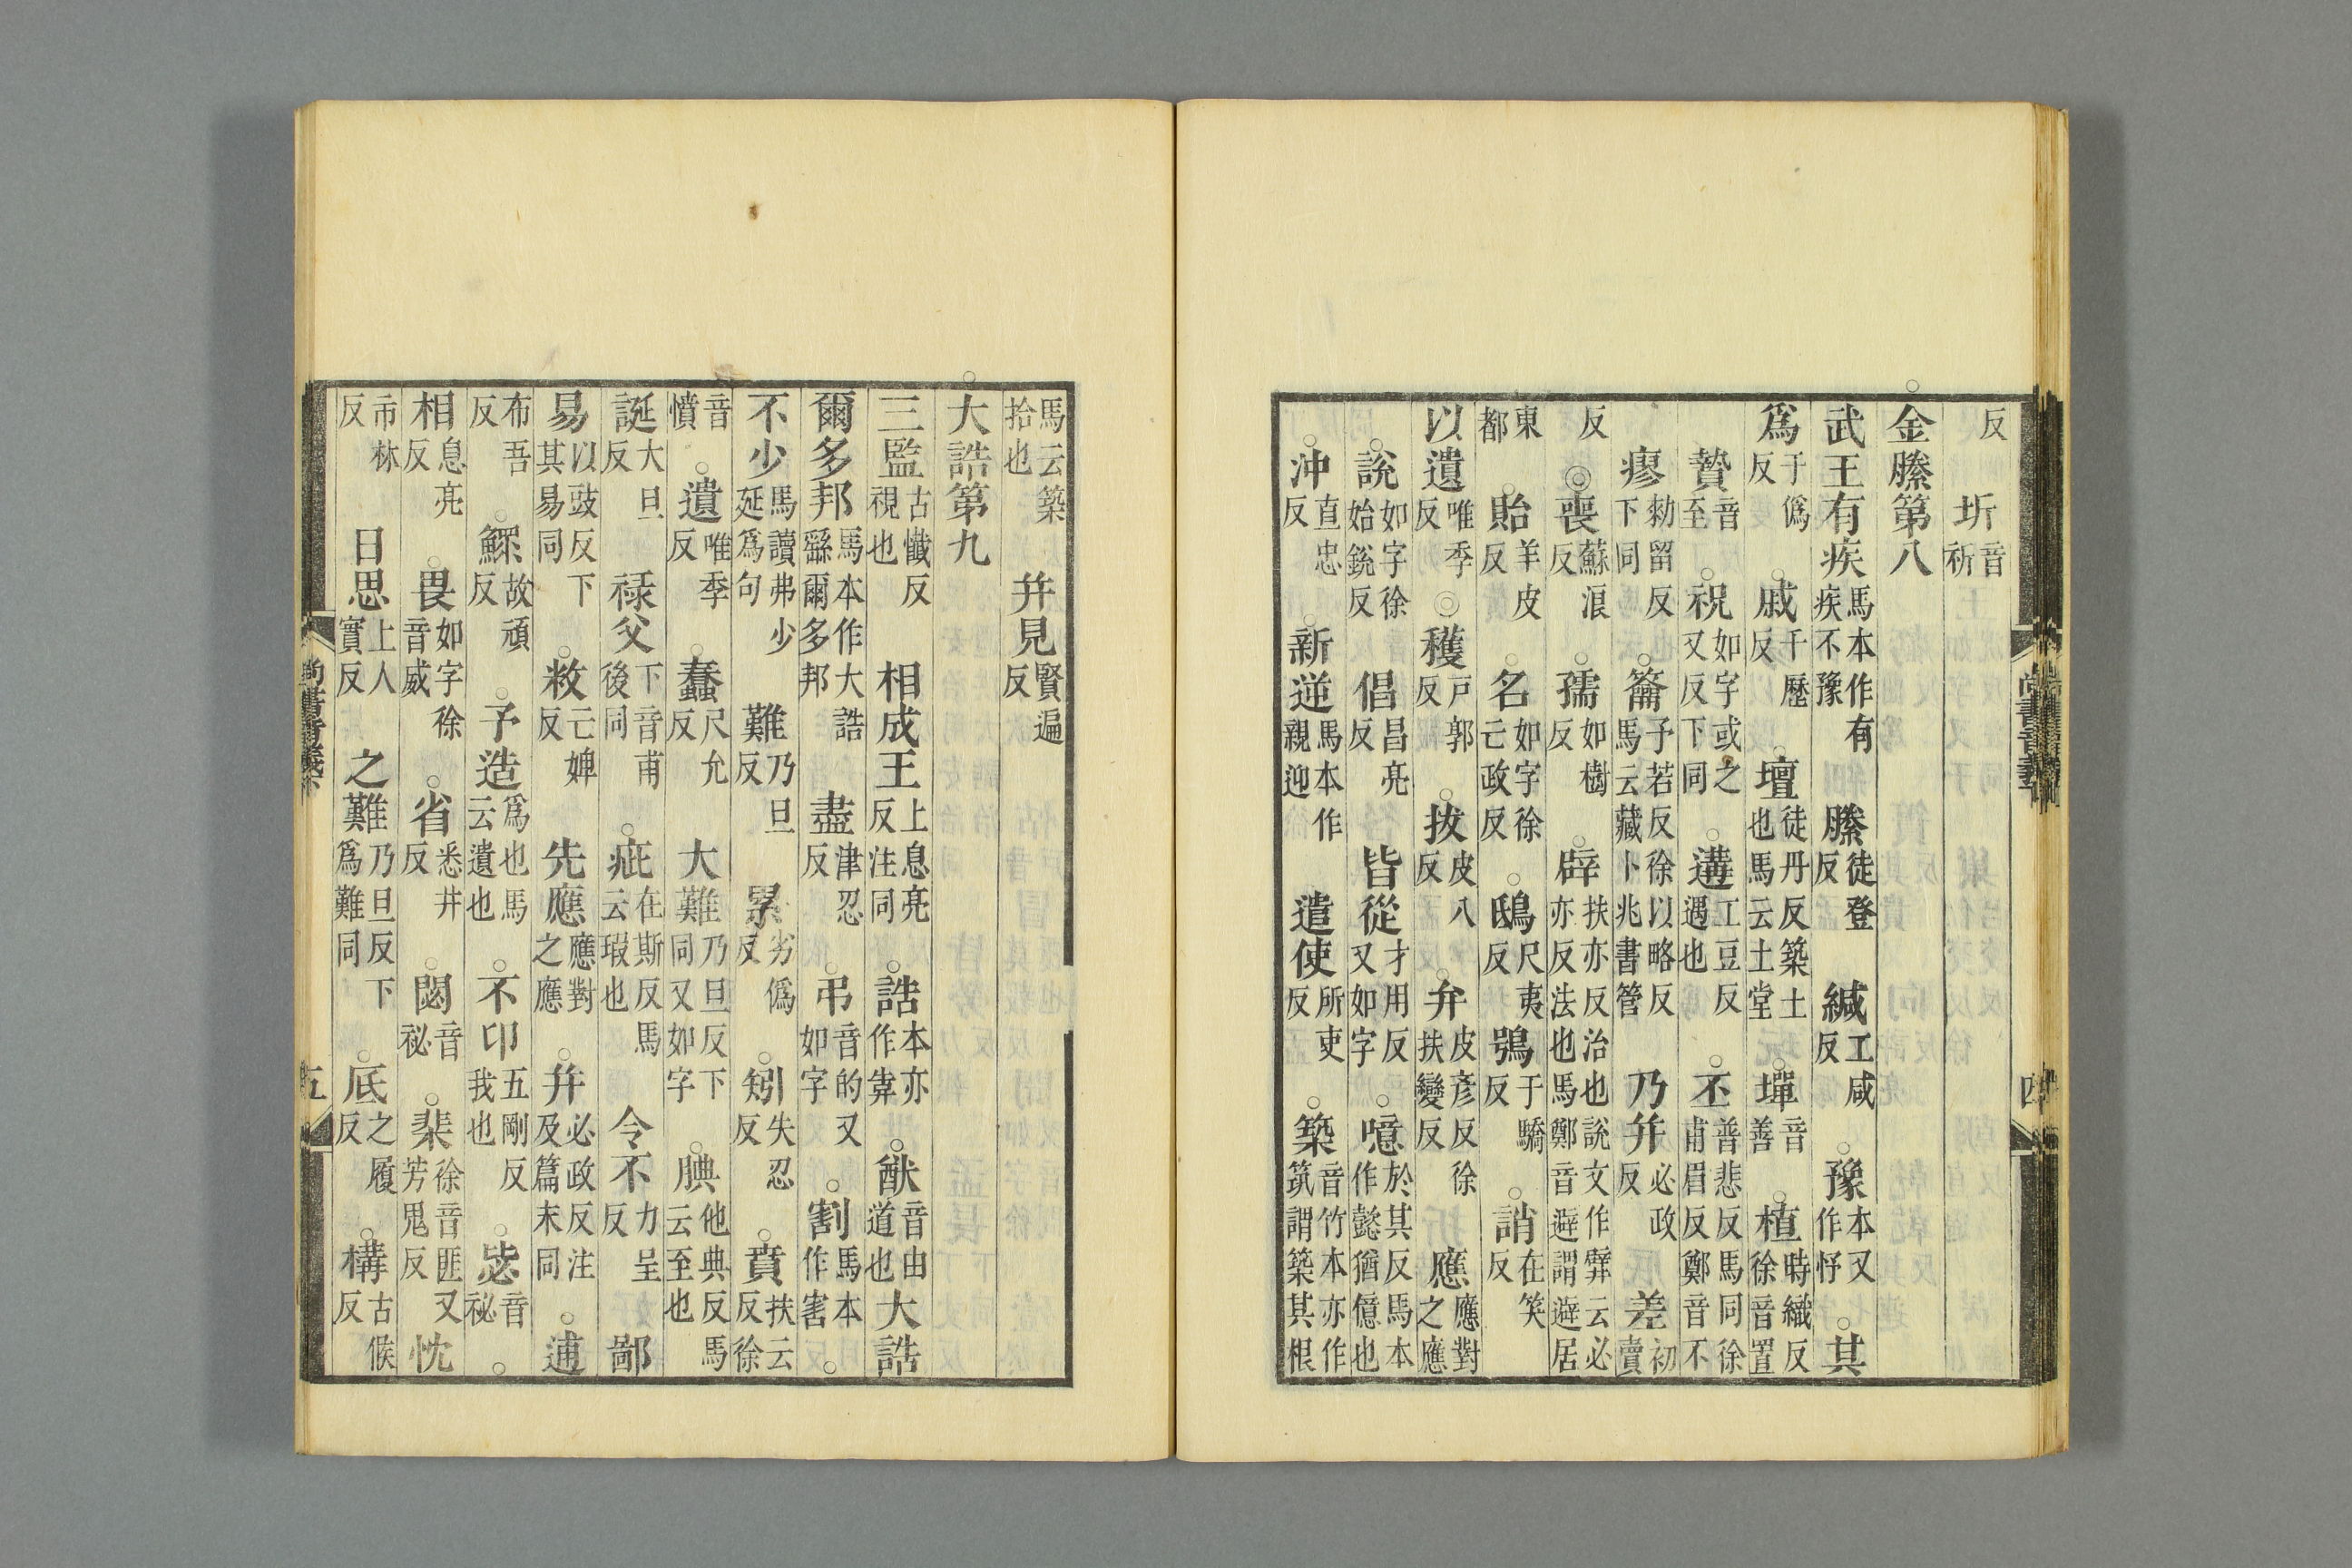 反　圻音祈
金縢第八
武王有疾馬本作有疾不豫　縢徒登反　緘工咸反　豫本又作忬　其
爲于僞反　戚千歷反　壇徒丹反築土也馬云土堂　墠音善　植時織反徐音置
贄音至　祝如字或之又反下同　遘工豆反遇也　丕普悲反馬同徐甫眉反鄭音不
瘳勑留反下同　籥予若反徐以略反馬云藏卜兆書管　乃幷必政反　差初賣
反　喪蘇浪反　孺如樹反　辟扶亦反治也說文作䢃云必亦反法也馬鄭音避謂避居
東都　貽羊皮反　名如字徐亡政反　鴟尺夷反　鴞于驕反　誚在笑反
以遺唯季反　穫戸郭反　拔皮八反　弁皮彥反徐扶變反　應應對之應
說如字徐始銳反　倡昌亮反　皆從才用反又如字　噫於其反馬本作懿猶億也
沖直忠反　新逆馬本作親迎　遣使所吏反　築音竹本亦作筑謂築其根
馬云築拾也　幷見賢遍反
大誥第九
三監古懺反視也　相成王上息亮反注同　誥本亦作𢍎　猷音由道也　大誥
爾多邦馬本作大誥繇爾多邦　盡津忍反　弔音的又如字　割馬本作害
不少馬讀弗少延爲句　難乃旦反　累劣僞反　矧失忍反　賁扶云反徐
音憤　遺唯季反　蠢尺允反　大難乃旦反下同又如字　腆他典反馬云至也
誕大旦反　祿父下音甫後同　疵在斯反馬云瑕也　令不力呈反　鄙
易以豉反下其易同　敉亡婢反　先應應對之應　幷必政反注及篇末同　逋
布吾反　鰥故頑反　予造爲也馬云遺也　不卬五剛反我也　毖音祕
相息亮反　畏如字徐音威　省悉井反　閟音祕　棐徐音匪又芳鬼反　忱
市林反　日思上人實反　之難乃旦反下爲難同　厎之履反　構古候反
尚書音義下
五
四